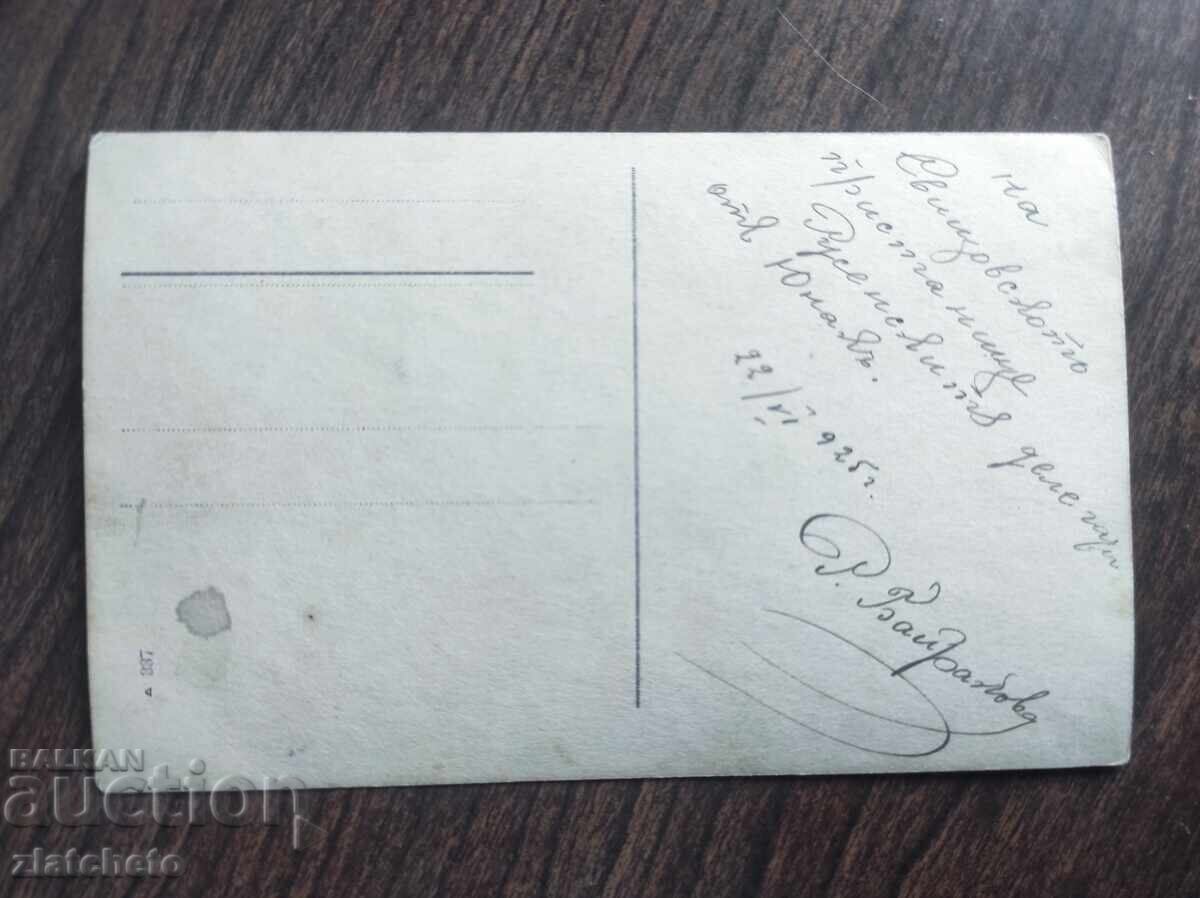 на
Свищовското
пристанище
Русенскитѣ делегати
отъ Юнакъ.
22/VI 925 г.
Р. Байрамова
▵ 337
BALKAN
auction
zlatcheto